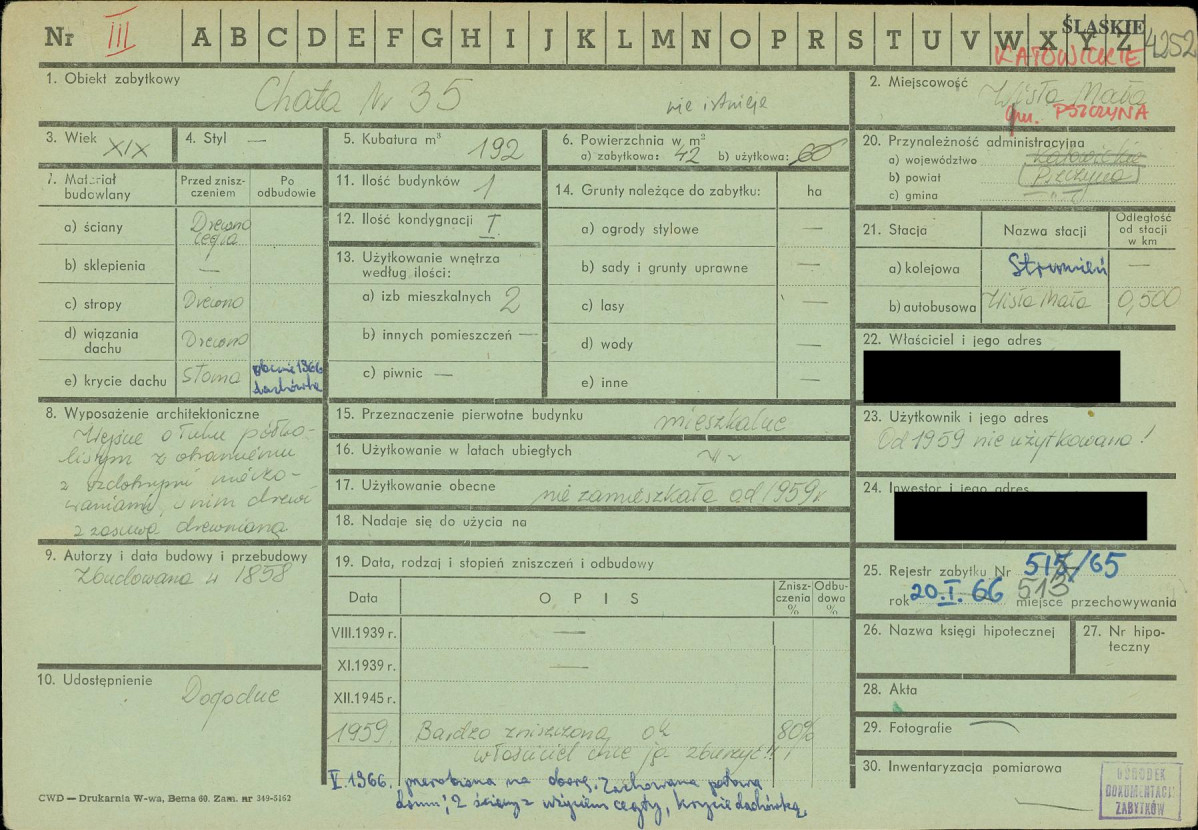 Nr III A B C D E F G H I J K L M N O P R S T U V W X Y Z
ŚLĄSKIE
KATOWICKIE
4252
1. Obiekt zabytkowy
Chata Nr 35
nie istnieje
2. Miejscowość
Wisła Mała
gm. PSZCZYNA
3. Wiek XIX
4. Styl —
5. Kubatura m³ 192
6. Powierzchnia w m²
a) zabytkowa: 42 b) użytkowa: 60
20. Przynależność administracyjna
a) województwo Katowickie
b) powiat Pszczyna
c) gmina
7. Materiał budowlany
Przed zniszczeniem
Po odbudowie
a) ściany Drewno cegła
b) sklepienia —
c) stropy Drewno
d) wiązania dachu Drewno
e) krycie dachu Słoma obecnie 1966 dachówka
11. Ilość budynków 1
12. Ilość kondygnacji I
13. Użytkowanie wnętrza według ilości:
a) izb mieszkalnych 2
b) innych pomieszczeń —
c) piwnic —
14. Grunty należące do zabytku: ha
a) ogrody stylowe —
b) sady i grunty uprawne —
c) lasy —
d) wody —
e) inne —
21. Stacja
Nazwa stacji
Odległość od stacji w km
a) kolejowa Strumień —
b) autobusowa Wisła Mała 0,500
22. Właściciel i jego adres
8. Wyposażenie architektoniczne
Wejście o łuku półko-
listym z
z ozdobnymi
z zasuwą drewnianą
15. Przeznaczenie pierwotne budynku mieszkalne
16. Użytkowanie w latach ubiegłych
17. Użytkowanie obecne niezamieszkała od 1959 r
18. Nadaje się do użycia na
23. Użytkownik i jego adres
Od 1959 nie użytkowana!
24. Inwestor i jego adres
9. Autorzy i data budowy i przebudowy
Zbudowana w 1858
19. Data, rodzaj i stopień zniszczeń i odbudowy
Data
OPIS
Zniszczenia %
Odbudowa %
VIII.1939 r. —
XI.1939 r. —
XII.1945 r.
1959 Bardzo zniszczona, ok 80%
właściciel chce ją zburzyć!!
V. 1966. przerobiona na oborę. Zachowana połowa
domu; 2 ściany z użyciem cegły, krycie dachówką.
25. Rejestr zabytku Nr 515/65
513
rok 20.I.66 miejsce przechowywania
26. Nazwa księgi hipotecznej
27. Nr hipoteczny
10. Udostępnienie
Dogodne
28. Akta
29. Fotografie
30. Inwentaryzacja pomiarowa
OŚRODEK
DOKUMENTACJI
ZABYTKÓW
CWD — Drukarnia W-wa, Bema 60. Zam. nr 349-5162